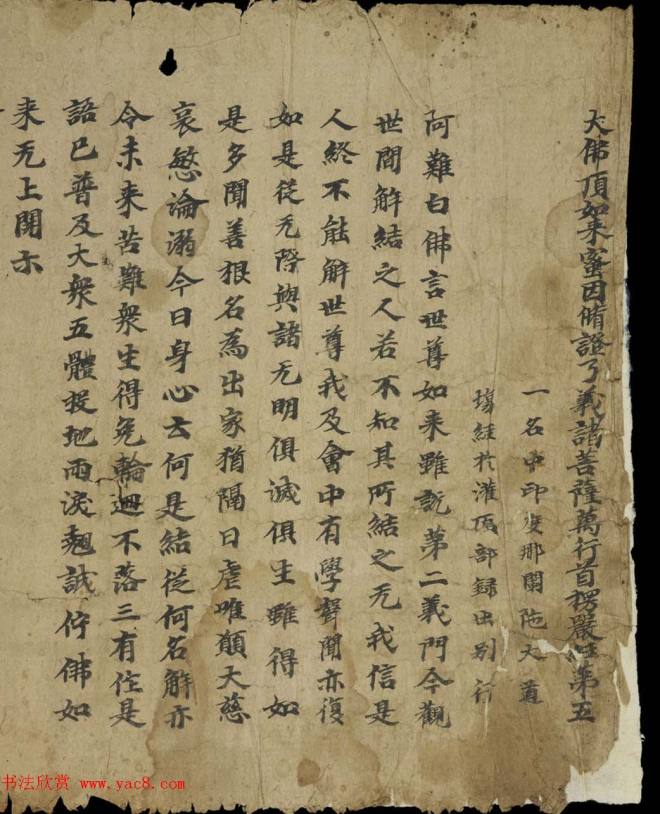 大佛頂如来蜜因脩證了義諸菩薩萬行首楞嚴経第五
一名中印度那蘭陁大道
場経於灌頂部録出別行
阿難白佛言世尊如来雖說第二義門今觀
世間解結之人若不知其所結之无我信是
人終不能解世尊我及會中有學聲聞亦復
如是従无際與諸无明俱滅俱生雖得如
是多聞善根名為出家猶隔日虐唯願大慈
哀愍淪溺今日身心云何是結従何名解亦
令未来苦難衆生得免輪迴不落三有作是
語已普及大衆五體投地雨淚翹誠佇佛如
来无上開示
书法欣赏 www.yac8.com